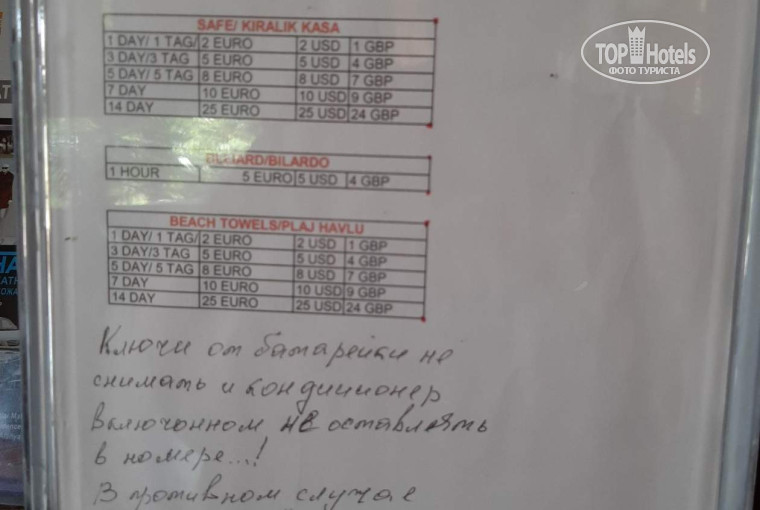 TOP Hotels
ФОТО ТУРИСТА
SAFE/ KIRALIK KASA
1 DAY/ 1 TAG/ 2 EURO 2 USD 1 GBP
3 DAY/3 TAG 5 EURO 5 USD 4 GBP
5 DAY/ 5 TAG 8 EURO 8 USD 7 GBP
7 DAY 10 EURO 10 USD 9 GBP
14 DAY 25 EURO 25 USD 24 GBP
BILIARD/BILARDO
1 HOUR 5 EURO 5 USD 4 GBP
BEACH TOWELS/PLAJ HAVLU
1 DAY/ 1 TAG/ 2 EURO 2 USD 1 GBP
3 DAY/3 TAG 5 EURO 5 USD 4 GBP
5 DAY/ 5 TAG 8 EURO 8 USD 7 GBP
7 DAY 10 EURO 10 USD 9 GBP
14 DAY 25 EURO 25 USD 24 GBP
Ключи от батарейки не
снимать и кондиционер
включонном не оставлять
в номере...!
В противном случае